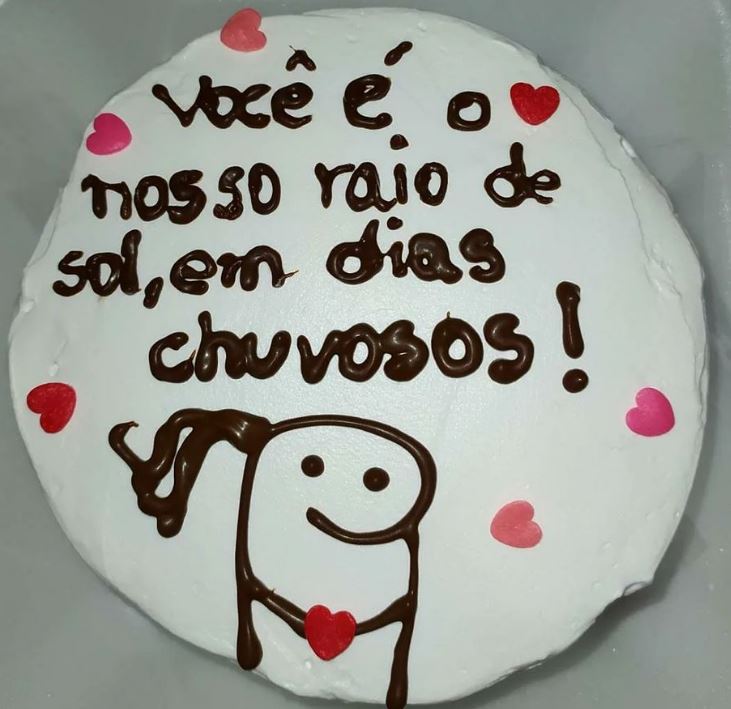 você é o
nosso raio de
sol, em dias
chuvosos!